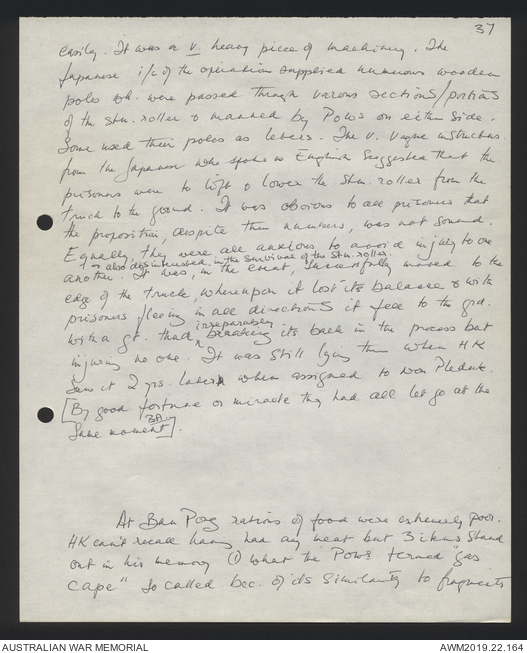 37
easily. It was a v. heavy piece of machinery. The
Japanese i/c of the operation supplied numerous wooden
poles wh. were passed through various sections/portions
of the stm. roller & manned by POWs on either side.
Some used their poles as levers. The v. vague instructions
from the Japanese who spoke no English suggested that the
prisoners were to lift & lower the stm. roller from the
truck to the ground. It was obvious to all prisoners that
the proposition, despite their numbers, was not sound.
Equally, they were all anxious to avoid injury to one
& also disinterested in the survival of the stm. roller.
another. It was, in the event, successfully moved to the
edge of the truck, whereupon it lost its balance & with
prisoners fleeing in all directions it fell to the grd.
irreparably
with a gt. thud breaking its back in the process but
injuring no one. It was still lying there when HK
saw it 2 yrs. later when assigned to Non Pladuk.
[By good fortune or miracle they had all let go at the
same moment]. BA
At Ban Pong rations of food were extremely poor.
HK can't recall having had any meat but 3 items stand
out in his memory (1) what the POWs termed "gas
cape" so called bec. of its similarity to fragments
AUSTRALIAN WAR MEMORIAL
AWM2019.22.164